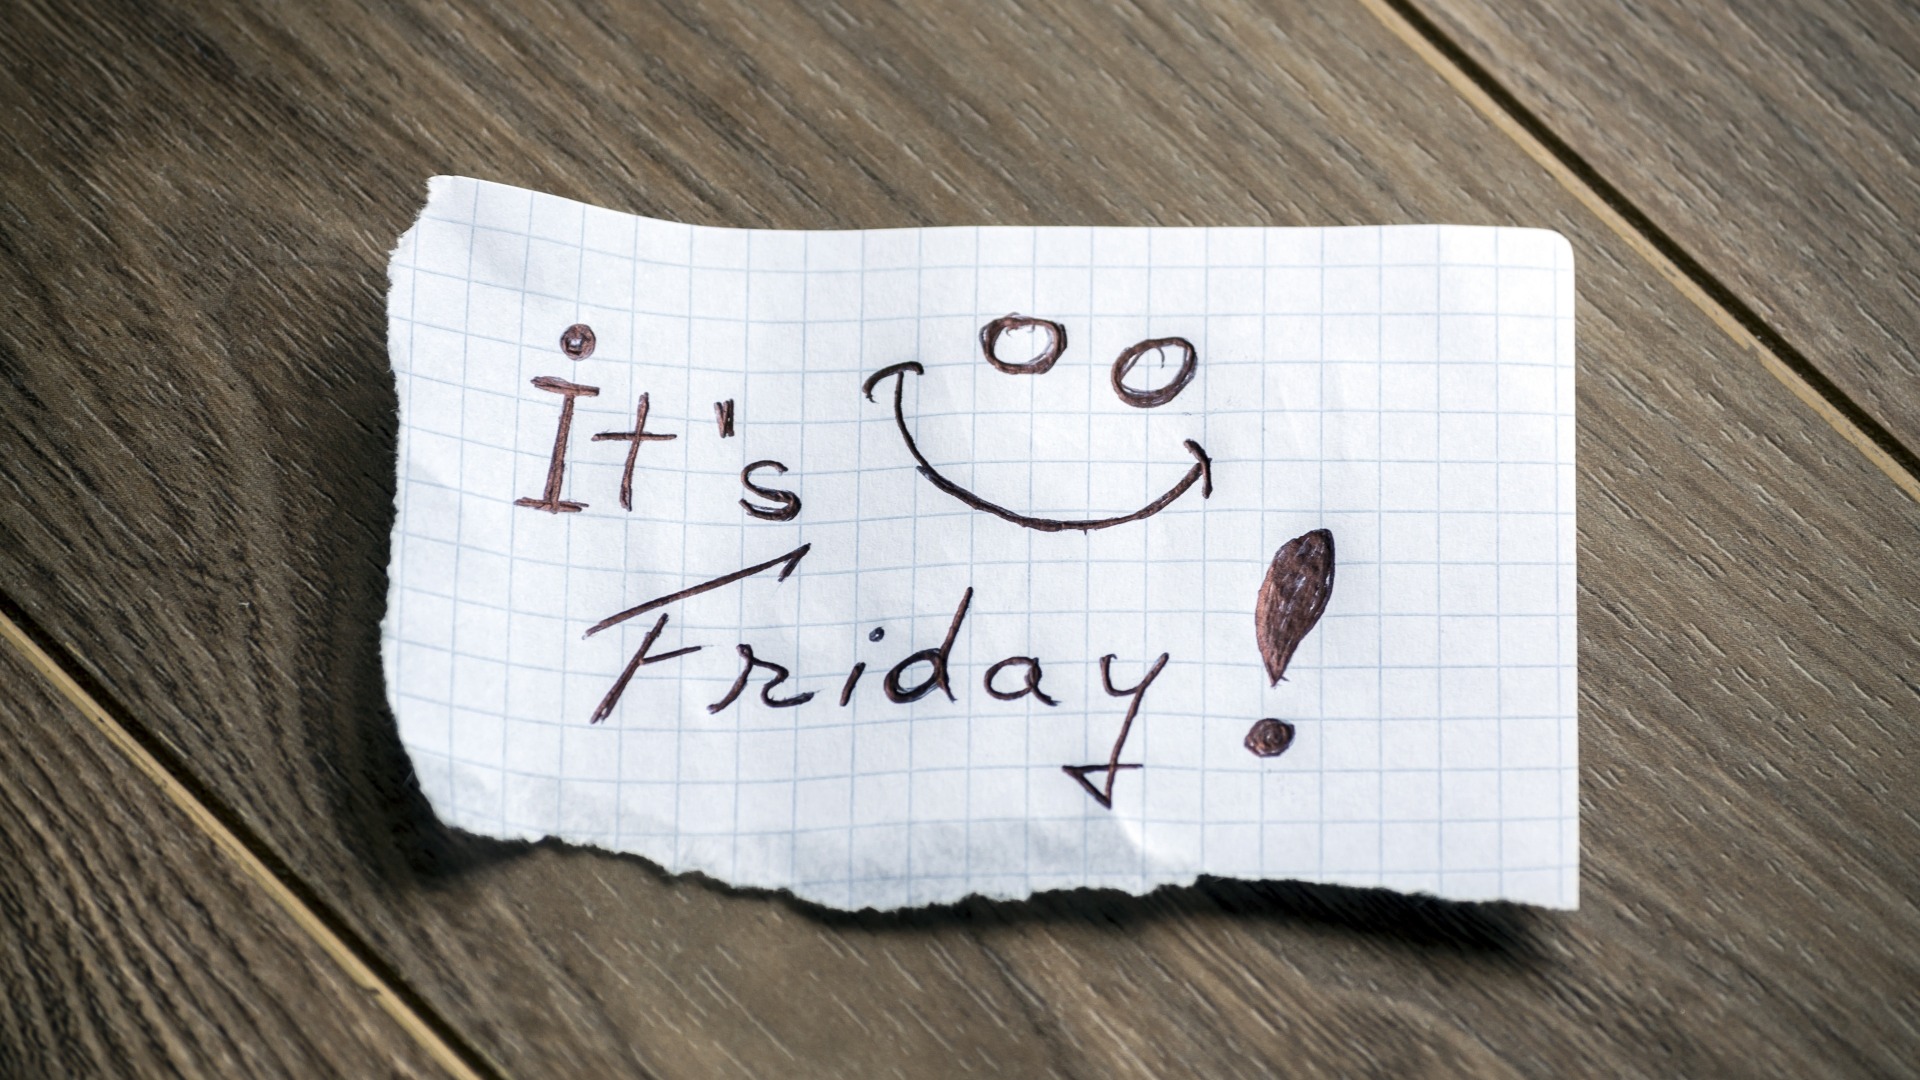 It's
Friday!